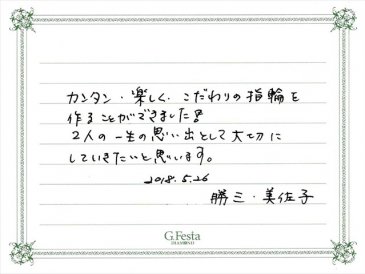 カンタン・楽しく・こだわりの指輪を
作ることができました!
2人の一生の思い出として大切に
していきたいと思います。
2018.5.26
勝三・美佐子
G.Festa
DIAMOND